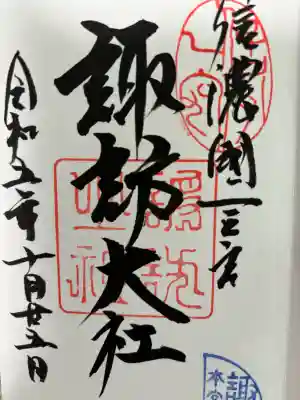 信濃國一之宮
諏訪大社
令和五年十月廿五日
諏
本宮